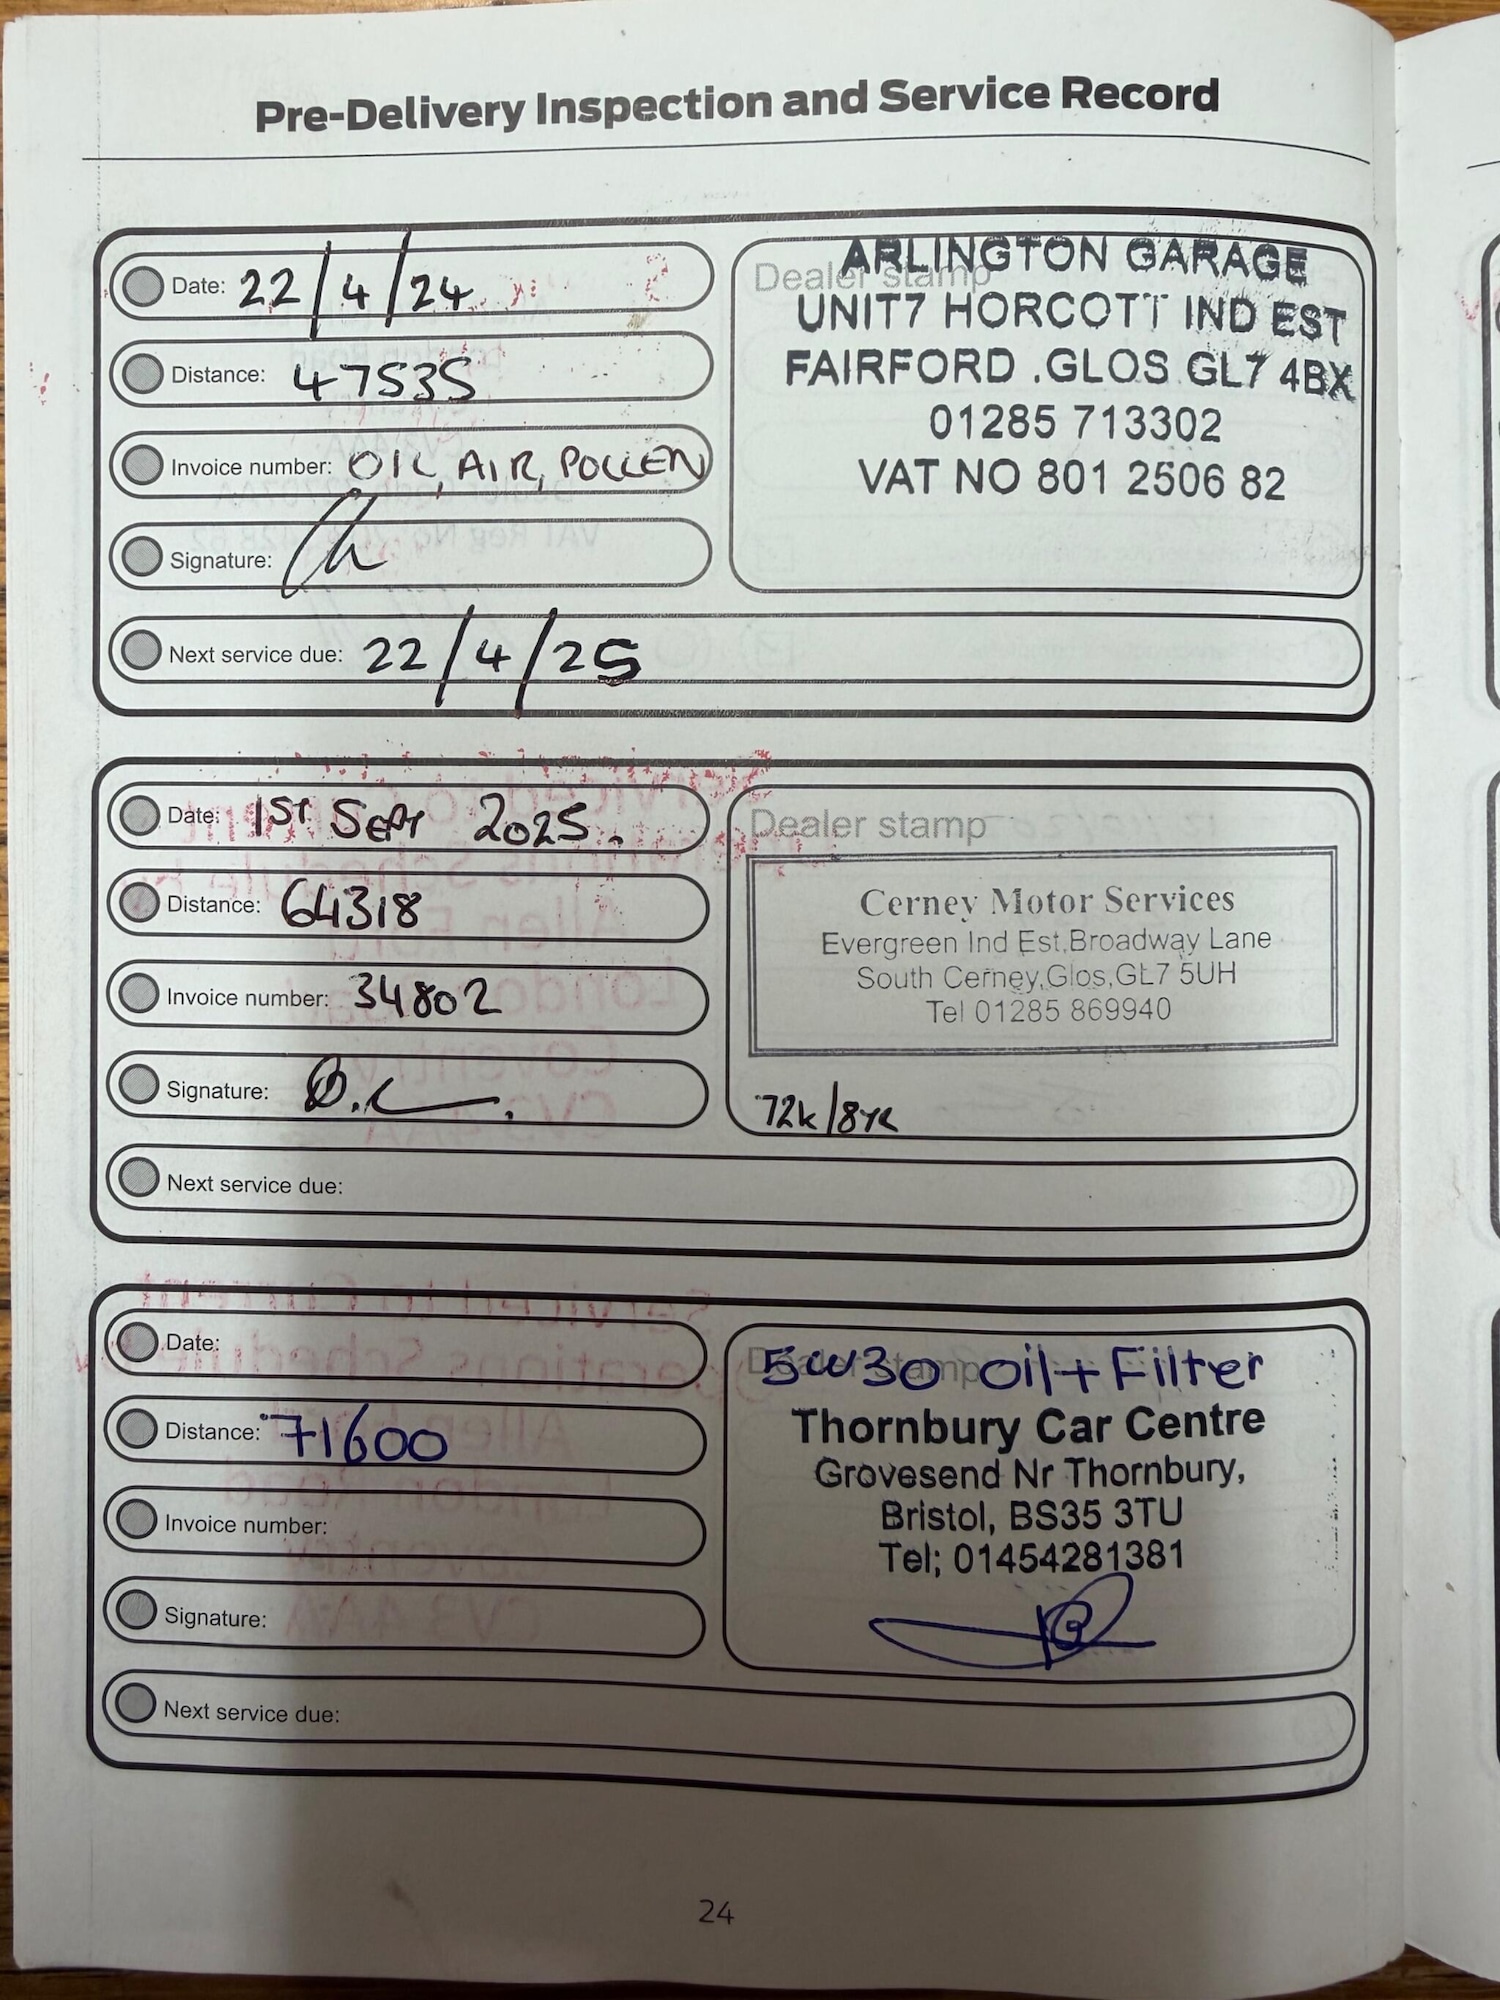 Pre-Delivery Inspection and Service Record
Date: 22/4/24
Distance: 47535
Invoice number: OIL, AIR, POLLEN
Signature:
Next service due: 22/4/25
Dealer stamp
ARLINGTON GARAGE
UNIT7 HORCOTT IND EST
FAIRFORD .GLOS GL7 4BX
01285 713302
VAT NO 801 2506 82
Date: 1ST SEPT 2025.
Distance: 64318
Invoice number: 34802
Signature:
Next service due:
Dealer stamp
Cerney Motor Services
Evergreen Ind Est,Broadway Lane
South Cerney,Glos,GL7 5UH
Tel 01285 869940
72k/8YR
Date:
Distance: 71600
Invoice number:
Signature:
Next service due:
Dealer stamp
5W30 Oil + Filter
Thornbury Car Centre
Grovesend Nr Thornbury,
Bristol, BS35 3TU
Tel; 01454281381
24